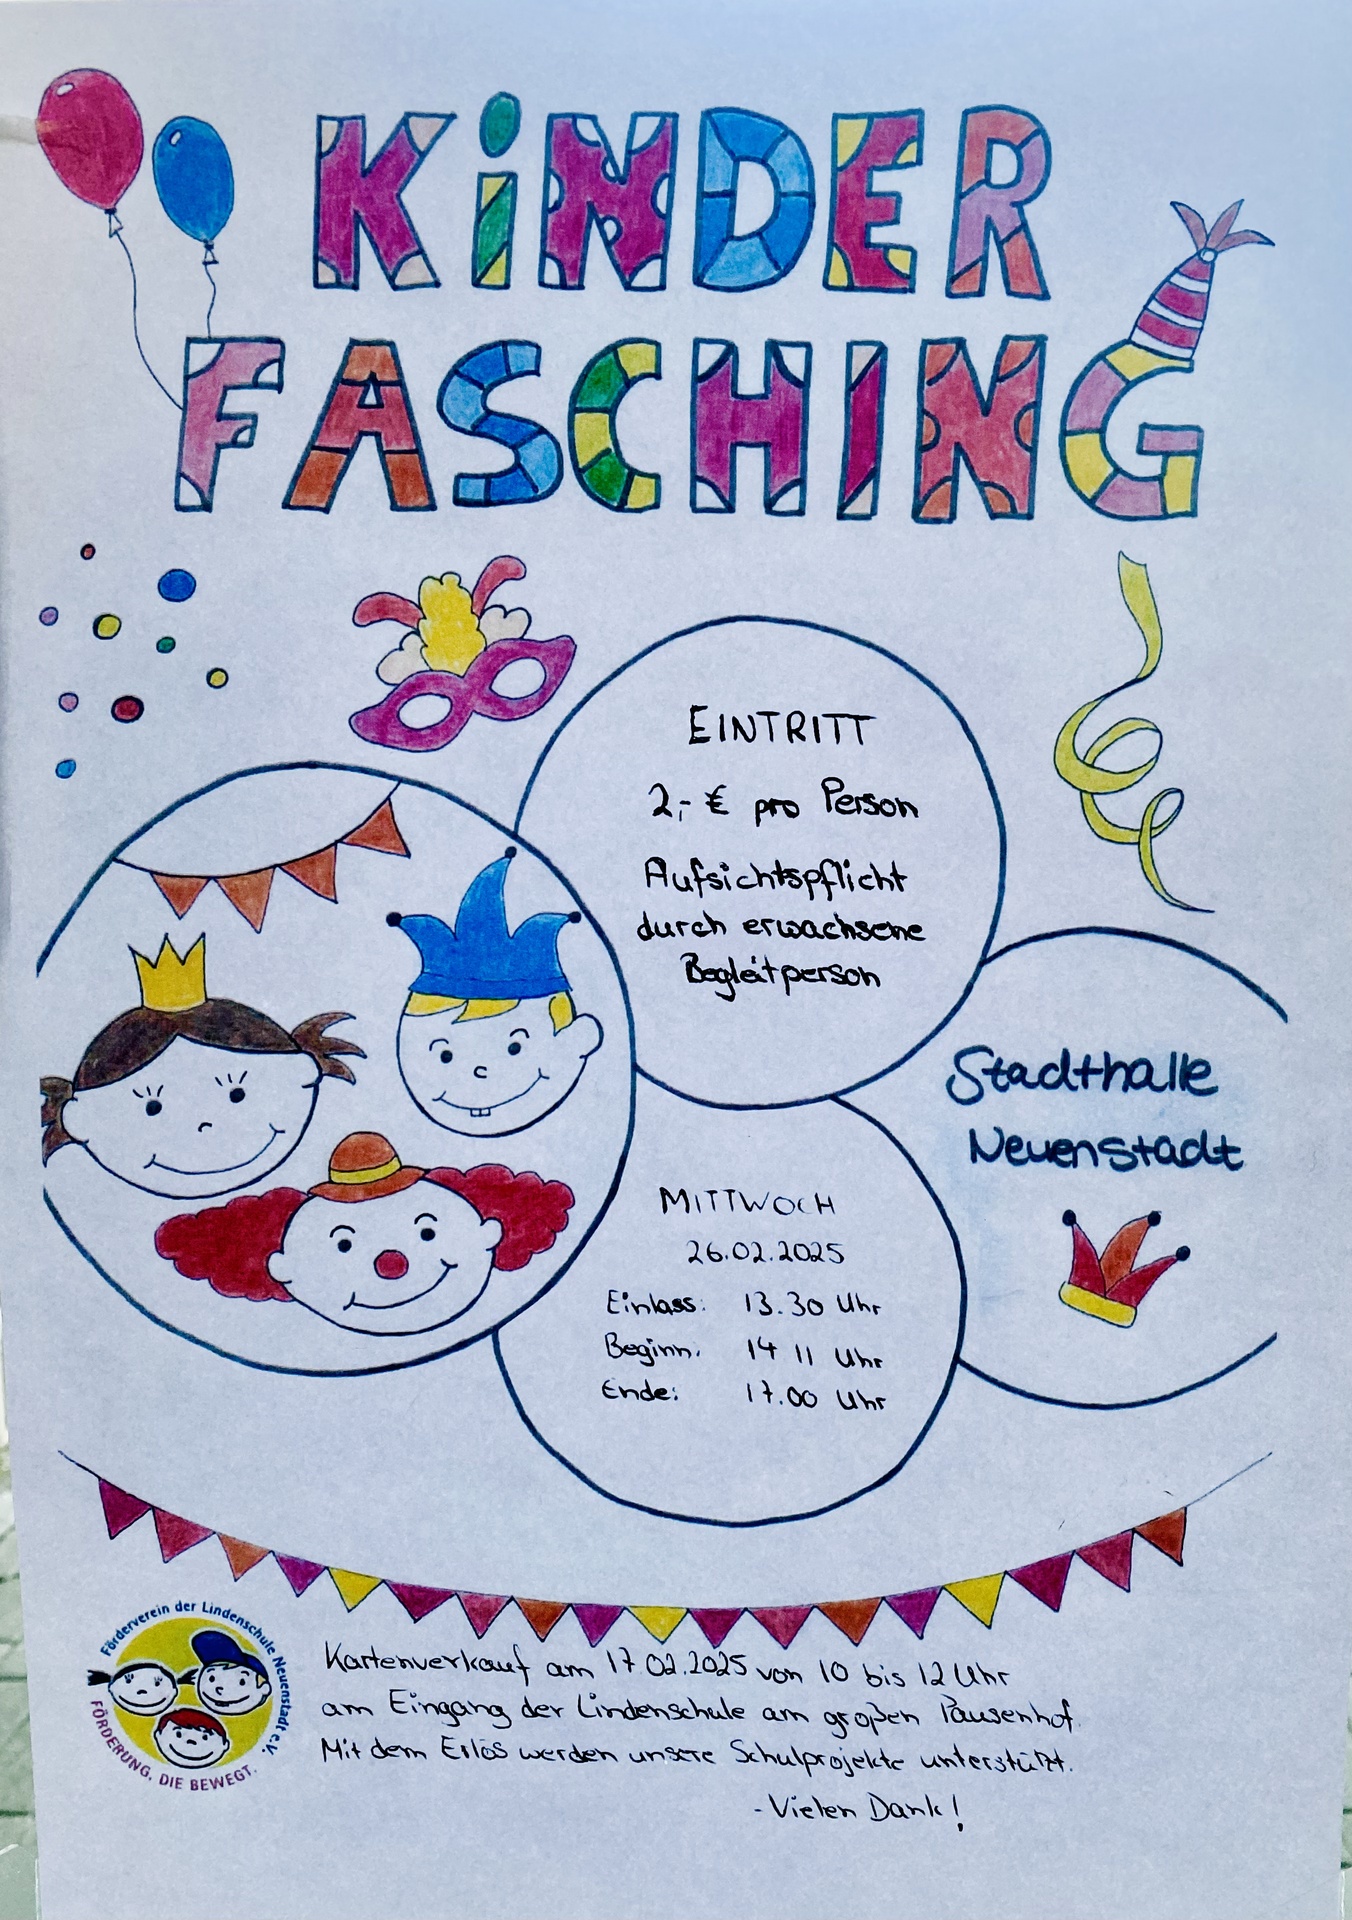 KINDER
FASCHING
EINTRITT
2,- € pro Person
Aufsichtspflicht
durch erwachsene
Begleitperson
Stadthalle
Neuenstadt
MITTWOCH
26.02.2025
Einlass: 13.30 Uhr
Beginn: 14 11 Uhr
Ende: 17.00 Uhr
Förderverein der Lindenschule Neuenstadt e.V.
FÖRDERUNG, DIE BEWEGT.
Kartenverkauf am 17 02.2025 von 10 bis 12 Uhr
am Eingang der Lindenschule am großen Pausenhof.
Mit dem Erlös werden unsere Schulprojekte unterstützt.
- Vielen Dank!